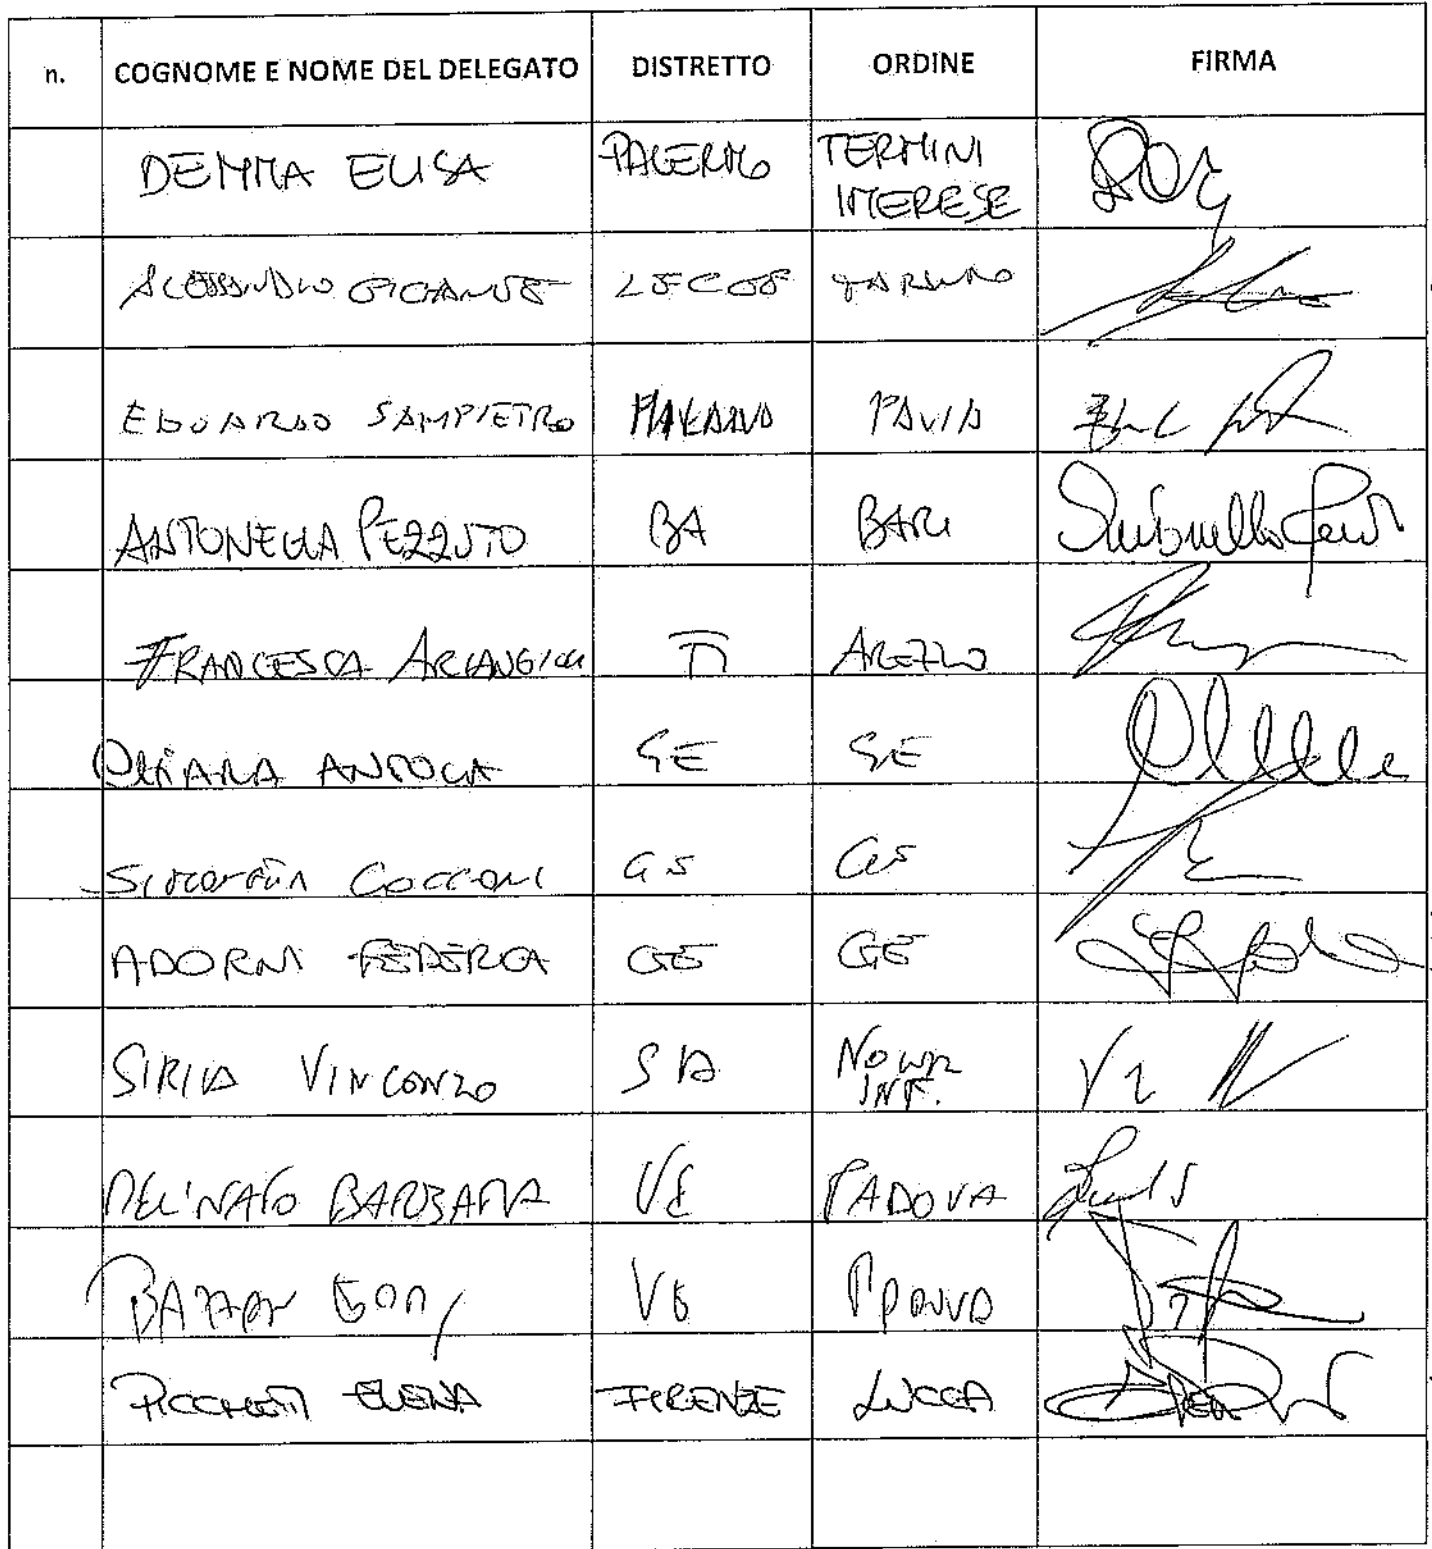 n. COGNOME E NOME DEL DELEGATO DISTRETTO ORDINE FIRMA
DEMMA ELISA PALERMO TERMINI
IMERESE
ALESSANDRO GIGANTE LECCE TARANTO
EDOARDO SAMPIETRO MILANO PAVIA
ANTONELLA PEZZUTO BA BARI
FRANCESCA ARCANGIOLI FI AREZZO
CHIARA ANTOLA GE GE
COCCONI GE GE
ADORNI FEDERICA GE GE
SIRICA VINCENZO SA NOCERA
INF.
DELL'NATO BARBARA VE PADOVA
VE PADOVA
PICCHETTI ELENA FIRENZE LUCCA